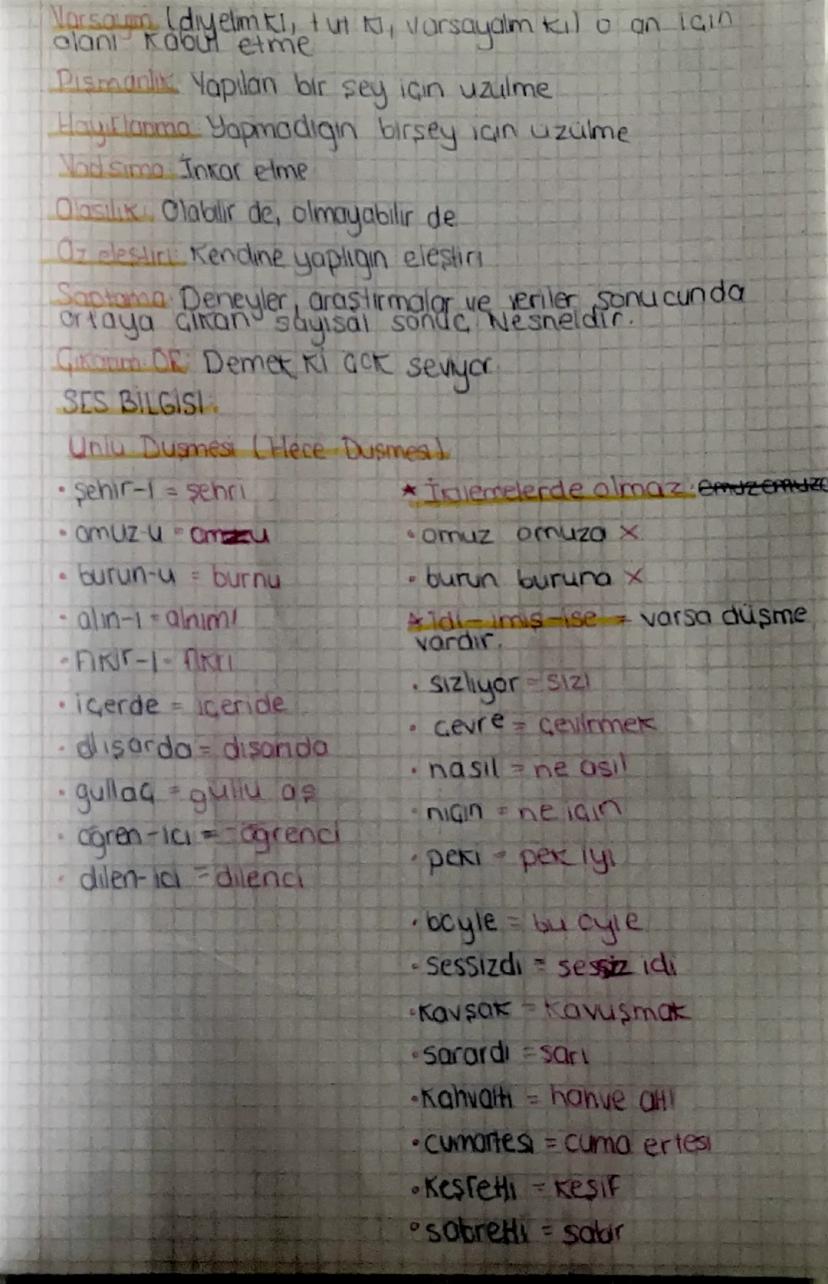 Varsayım (diyelim ki, tut ki, varsayalım ki) o an için
olanı kabul etme
Pişmanlık: Yapılan bir şey için üzülme
Hayıflanma: Yapmadığın birşey için üzülme
Yadsıma: İnkar etme
Olasılık: Olabilir de, olmayabilir de
Öz eleştiri: Kendine yaptığın eleştiri
Saptama: Deneyler, araştırmalar ve veriler sonucunda
ortaya çıkan sayısal sonuç. Nesneldir.
Çıkarım ÖR: Demek ki çok seviyor
SES BİLGİSİ:
Ünlü Düşmesi (Hece Düşmesi)
• şehir-i = şehri
• omuz-u = omzu
• burun-u = burnu
• alın-ı = alnımı
• fikir-i = fikri
• içerde = içeride
• dışarda = dışarıda
• güllaç = güllü aş
• öğren-ici = öğrenci
• dilen-ici = dilenci
* İkilemelerde olmaz.
• omuz omuza x
• burun buruna x
* idi-imiş-ise = varsa düşme
vardır.
• sızlıyor = sızı
• çevre = çevirmek
• nasıl = ne asıl
• niçin = ne için
• peki = pek iyi
• böyle = bu öyle
• sessizdi = sessiz idi
• kavşak = kavuşmak
• sarardı = sarı
• kahvaltı = kahve altı
• cumartesi = cuma ertesi
• keşfetti = keşif
• sabretti = sabır